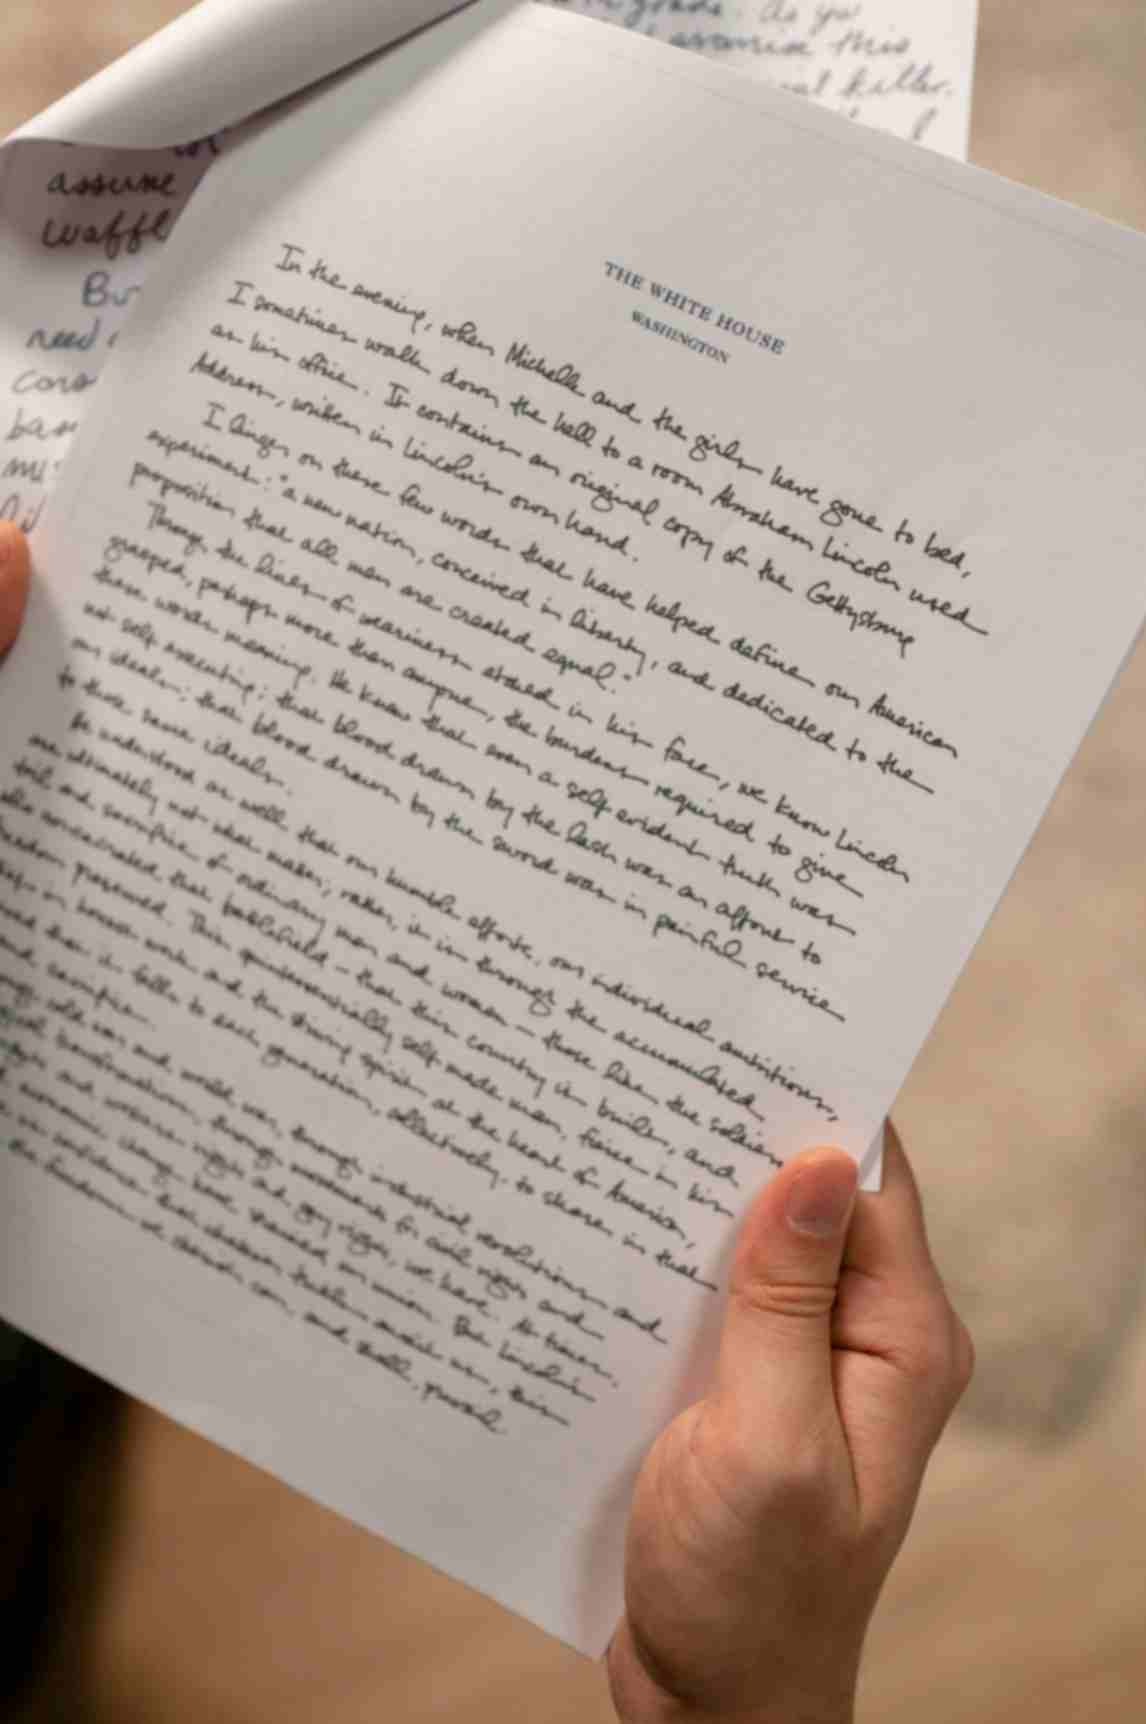 grade. As yo
assume this
killer.
assume
waffl
Bu
need
THE WHITE HOUSE
WASHINGTON
In the evening, when Michelle and the girls have gone to bed,
I sometimes walk down the hall to a room Abraham Lincoln used
as his office. It contains an original copy of the Gettysburg
Address, written in Lincoln's own hand.
I linger on these few words that have helped define our American
experiment: "a new nation, conceived in liberty, and dedicated to the
proposition that all men are created equal."
Through the lines of weariness etched in his face, we know Lincoln
grasped, perhaps more than anyone, the burdens required to give
these words meaning. He knew that even a self evident truth was
not self executing; that blood drawn by the lash was an affront to
our ideals; that blood drawn by the sword was in painful service
to those same ideals.
He understood as well that our humble efforts, our individual ambitions,
are ultimately not what matter; rather, it is through the accumulated
toil and sacrifice of ordinary men and women - those like the soldiers
who consecrated that battlefield - that this country is built, and
freedom preserved. This quintessentially self made man, fierce in his
in honest work and the striving spirit at the heart of America,
that it falls to each generation, collectively, to share in that
and sacrifice.
cold war and world war, through industrial revolutions and
transformations, through movements for civil rights and
and workers rights and gay rights, we have. At times,
economic change have strained our union. But Lincoln's
us confidence that whatever trials await us, this
the freedom we cherish can, and shall, prevail.